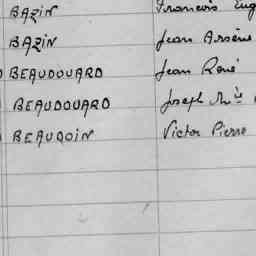 BAZIN François Eug
BAZIN Jean Arsène
BEAUDOUARD Jean René
BEAUDOUARD Joseph Mie
BEAUDOIN Victor Pierre